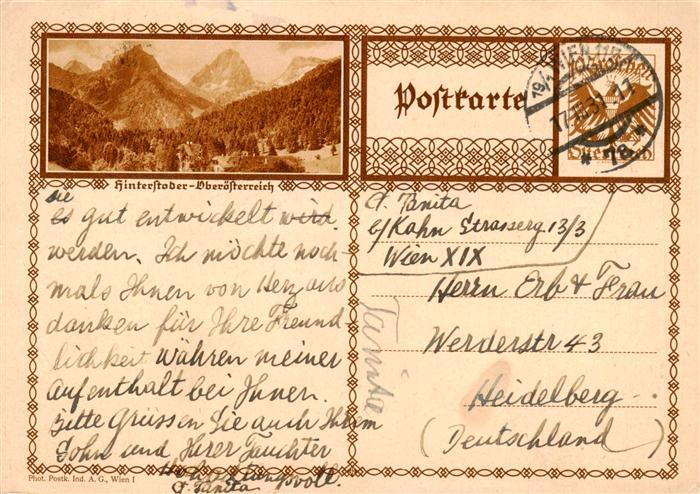 Postkarte
10 Groschen
Österreich
WIEN
17.II.31
* 7a *
Hinterstoder-Oberösterreich
die
es gut entwickelt wird
werden. Ich möchte noch-
mals Ihnen von Herz aus
danken für Ihre Freund-
lichkeit währen meiner
Aufenthalt bei Ihnen.
Bitte Grüssen Sie auch Ihrem
Sohn und Ihrer Tauchter
Hochachtungsvoll.
F. Tanita
Phot. Postk. Ind. A. G., Wien I
F. Tanita
b/Kahn Strasserg. 13/3
Wien XIX
Herrn Erb & Frau
Werderstr 43
Heidelberg
(Deutschland)
Tanita